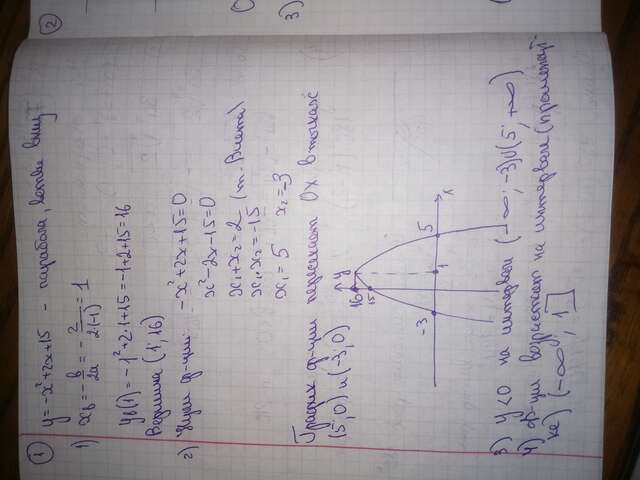 ①
y=-x²+2x+15 - парабола, ветви вниз
1) xв=-b/2a=-2/2·(-1)=1
yв(1)=-1²+2·1+15=-1+2+15=16
Вершина (1,16)
2) Нули ф-ции -x²+2x+15=0
x²-2x-15=0
x₁+x₂=2 (т. Виета)
x₁·x₂=-15
x₁=5 x₂=-3
График ф-ции пересекает Ox в точках
(5;0) и (-3,0)
y
16
15
-3 1 5 x
3) y<0 на интервале (-∞;-3)∪(5;+∞)
4) ф-ция возрастает на интервале (промежут
ке) (-∞; 1]
②
3)